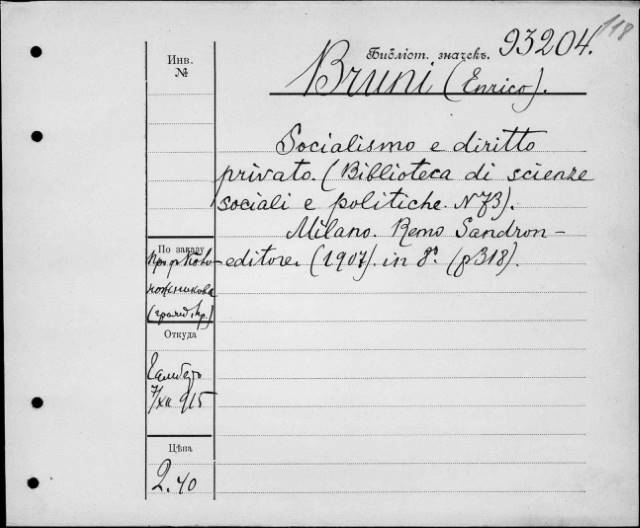 118
Инв. №
Библіот. значекъ. 93204.
Bruni (Enrico).
Socialismo e diritto
privato. (Biblioteca di scienze
sociali e politiche. N 73).
Milano. Remo Sandron-
editore. (1907). in 8º. (p 318).
По заказу
ножникова
Откуда
7/XII 915
Цѣна
2.40